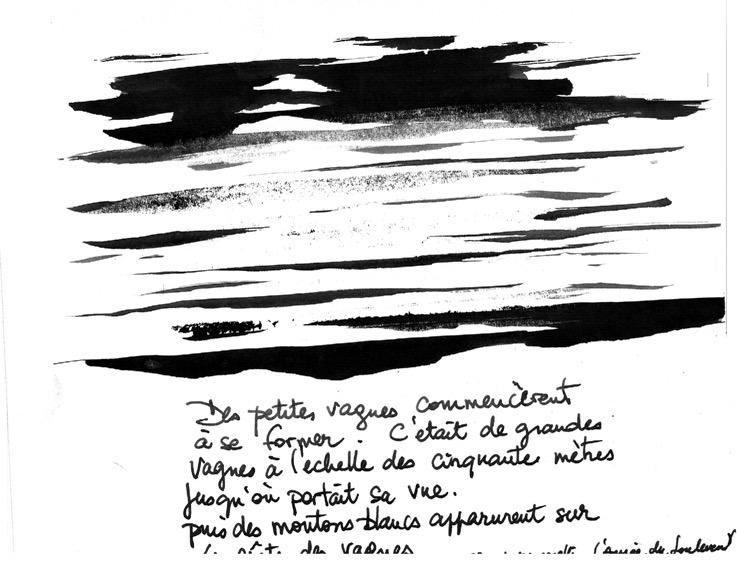 Des petites vagues commencèrent
à se former. C'était de grandes
vagues à l'echelle des cinquante mètres
jusqu'où portait sa vue.
puis des moutons blancs apparurent sur
des vagues